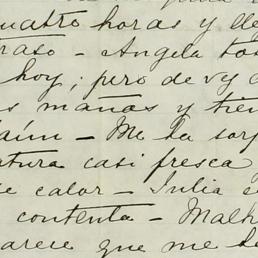 cuatro horas y lle
raso - Angela tos
hoy; pero de vz
s mañas y tien
- Me la sorp
atura casi fresca
e calor - Julia e
contenta - Malh
arece que me